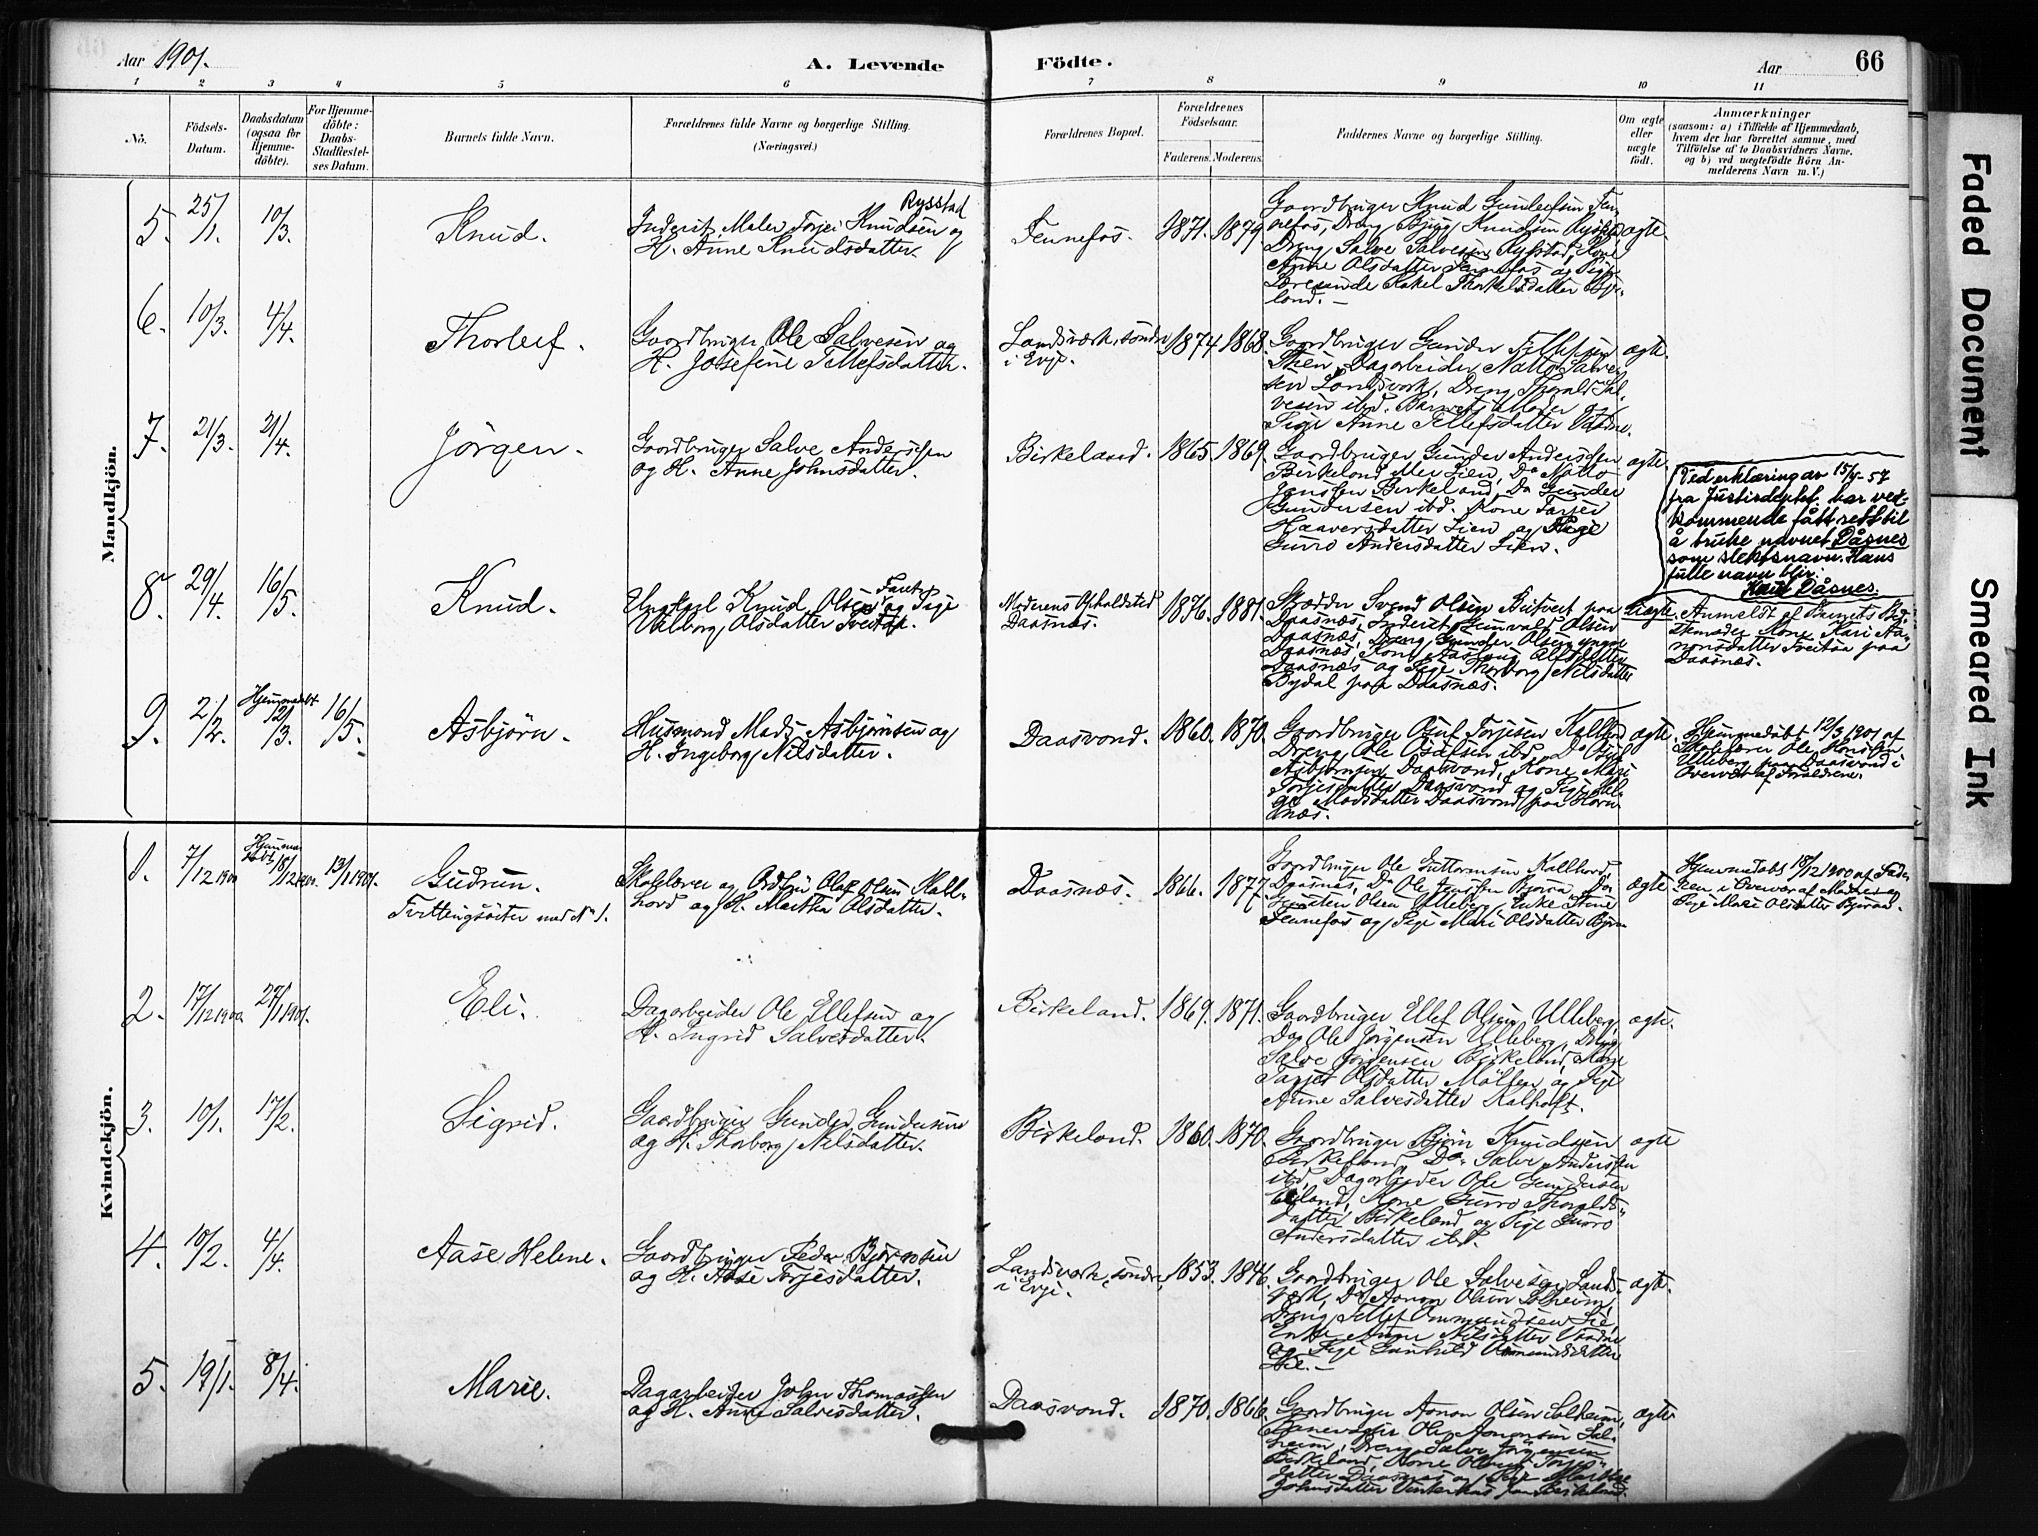 Aar 1901.
A. Levende Födte.
Aar
66
1 2 3 4 5 6 7 8 9 10 11
No.
Födsels-
Datum.
Daabsdatum
(ogsaa for
Hjemme-
döbte).
For Hjemme-
döbte:
Daabs-
Stadfæstel-
ses Datum.
Barnets fulde Navn.
Forældrenes fulde Navne og borgerlige Stilling.
(Næringsvei.)
Forældrenes Bopæl.
Forældrenes
Födselsaar.
Faderens. Moderens.
Faddernes Navne og borgerlige Stilling.
Om ægte
eller
uægte
födt.
Anmærkninger
(saasom: a) i Tilfælde af Hjemmedaab,
hvem der har forrettet samme, med
Tilföielse af to Daabsvidners Navne,
og b) ved uægtefödte Börn An-
melderens Navn m. V.)
Mandkjön.
5. 25/1. 10/3.
Knud.
Rysstad
Inderst, Maler Torjei Knudsen og
H. Anne Knudsdatter.
Fennefos.
1871. 1879.
Gaardbruger Knud Gunleifsen Fen-
nefos, Dreng Bjug Knudsen Rysstad
Dreng Salve Salvesen Rysstad, Kone
Anne Olsdatter Fennefos og Pige
Lærerinde Rakel Thorkelsdatter Byg-
land.-
ægte.
6. 10/3. 4/4.
Thorleif.
Gaardbruger Ole Salvesen og
H. Josefine Tellefsdatter.
Landsværk, söndre
i Evje.
1874. 1868.
Gaardbruger Gunder Tellefsen
Dagarbeider Salve-
sen Landsværk, Dreng Sal-
vesen ibd. Barnets Moder og
Pige Anne Tellefsdatter
ægte.
7. 21/3. 21/4.
Jörgen.
Gaardbruger Salve Anderssen
og H. Anne Johnsdatter.
Birkeland.
1865. 1869.
Gaardbruger Gunder Anderssen
Birkeland eller Lien, Do
Jenssen Birkeland, Do Gunder
Gundersen ibd. Kone Torjer
Haaversdatter Lien og Pige
Gurro Andersdatter Lien.
ægte.
Ved erklæring av 15/4-57
fra Justisdeptet. har ved-
kommende fått rett til
å bruke navnet Dåsnes
som slektsnavn. Hans
fulle navn blir:
Knut Dåsnes.
8. 29/4. 16/5.
Knud.
Ungkarl Knud Olsen Faret og Pige
Valborg Olsdatter Tveitaa.
Moderens Opholdsted
Daasnæs.
1876. 1881.
Skrædder Svend Olsen paa
Daasnæs, Inderst Gunvald Olsen
Daasnæs, Dreng Gunder Olsen
Daasnæs, Kone Aaslaug Olsdatter
Daasnæs og Pige Thorborg Nilsdatter
Bydal paa Daasnæs.
Uægte.
Anmeldt af Barnets Be-
stemoder Kone Kari Aa-
nonsdatter Tveitaa paa
Daasnæs.
9. 2/2. Hjemmedöbt 12/3. 16/5.
Asbjörn.
Husmand Mads Asbjörnsen og
H. Ingeborg Nilsdatter.
Daasvand.
1860. 1870.
Gaardbruger Torjesen
Dreng Ole ibd. Do
Asbjörnsen Daasvand, Kone Mari
Torjesdatter Daasvand og Pige Hel-
ge Madsdatter Daasvand paa Horn-
næs.
ægte.
Hjemmedöbt 12/3 1901 af
Skolelærer Ole
Ulleberg paa Daasvand i
Overvær af Forældrene.
Kvindekjön.
1. 7/12 1900 Hjemme-
döbt 18/12 1900. 13/1 1901.
Gudrun.
Tvillingsöster med No 1.
Skolelærer og Ordförer Olaf Olsen Kall-
hovd og H. Martha Olsdatter.
Daasnæs.
1866. 1877.
Gaardbruger Ole Guttormsen Kallhovd,
Daasnæs, Do Ole Do
Olsen Ulleberg, Enke Anne
Fennefos og Pige Mari Olsdatter
ægte
Hjemmedöbt 18/12 1900 af Fade-
ren i Overvær af Moderen og
Pige Mari Olsdatter
2. 17/12 1900 27/1 1901.
Eli.
Dagarbeider Ole Ellefsen og
H. Ingrid Salvesdatter.
Birkeland.
1869. 1871.
Gaardbruger Ellef Olsen Ulleberg,
Do Ole Jörgensen Ulleberg, Dreng
Salve Jörgensen Birkeland, Kone
Olsdatter og Pige
Anne Salvesdatter
ægte.
3. 10/1. 17/2.
Sigrid.
Gaardbruger Gunder Gundersen
og H. Thorborg Nilsdatter.
Birkeland.
1860. 1870.
Gaardbruger Björn Knudsen
Birkeland, Do Salve Anderssen
ibd, Dagarbeider Ole Gundersen
Kone Gurro Thoralds-
datter Birkeland og Pige Gurro
Andersdatter ibd.
ægte
4. 10/2. 4/4.
Aase Helene.
Gaardbruger Peder Björnsen
og H. Aase Torjesdatter.
Landsværk, söndre,
i Evje.
1853. 1876.
Gaardbruger Ole Salvesen Lands-
værk, Do Aanon Olsen Solheim,
Dreng Tellef Ommundsen Lie,
Enke Anne Nilsdatter
og Pige Gunhild Ommundsdatter
Lie.-
ægte.
5. 19/1. 8/4.
Marie.
Dagarbeider John Thomassen
og H. Anne Salvesdatter.
Daasvand.
1870. 1866.
Gaardbruger Aanon Olsen Solheim,
Ole Aanonsen Sol-
heim, Dreng Salve Jörgensen
Birkeland, Kone Torjes-
datter Daasnæs og Pige Marthe
Johnsdatter
ægte
Faded Document
Smeared Ink